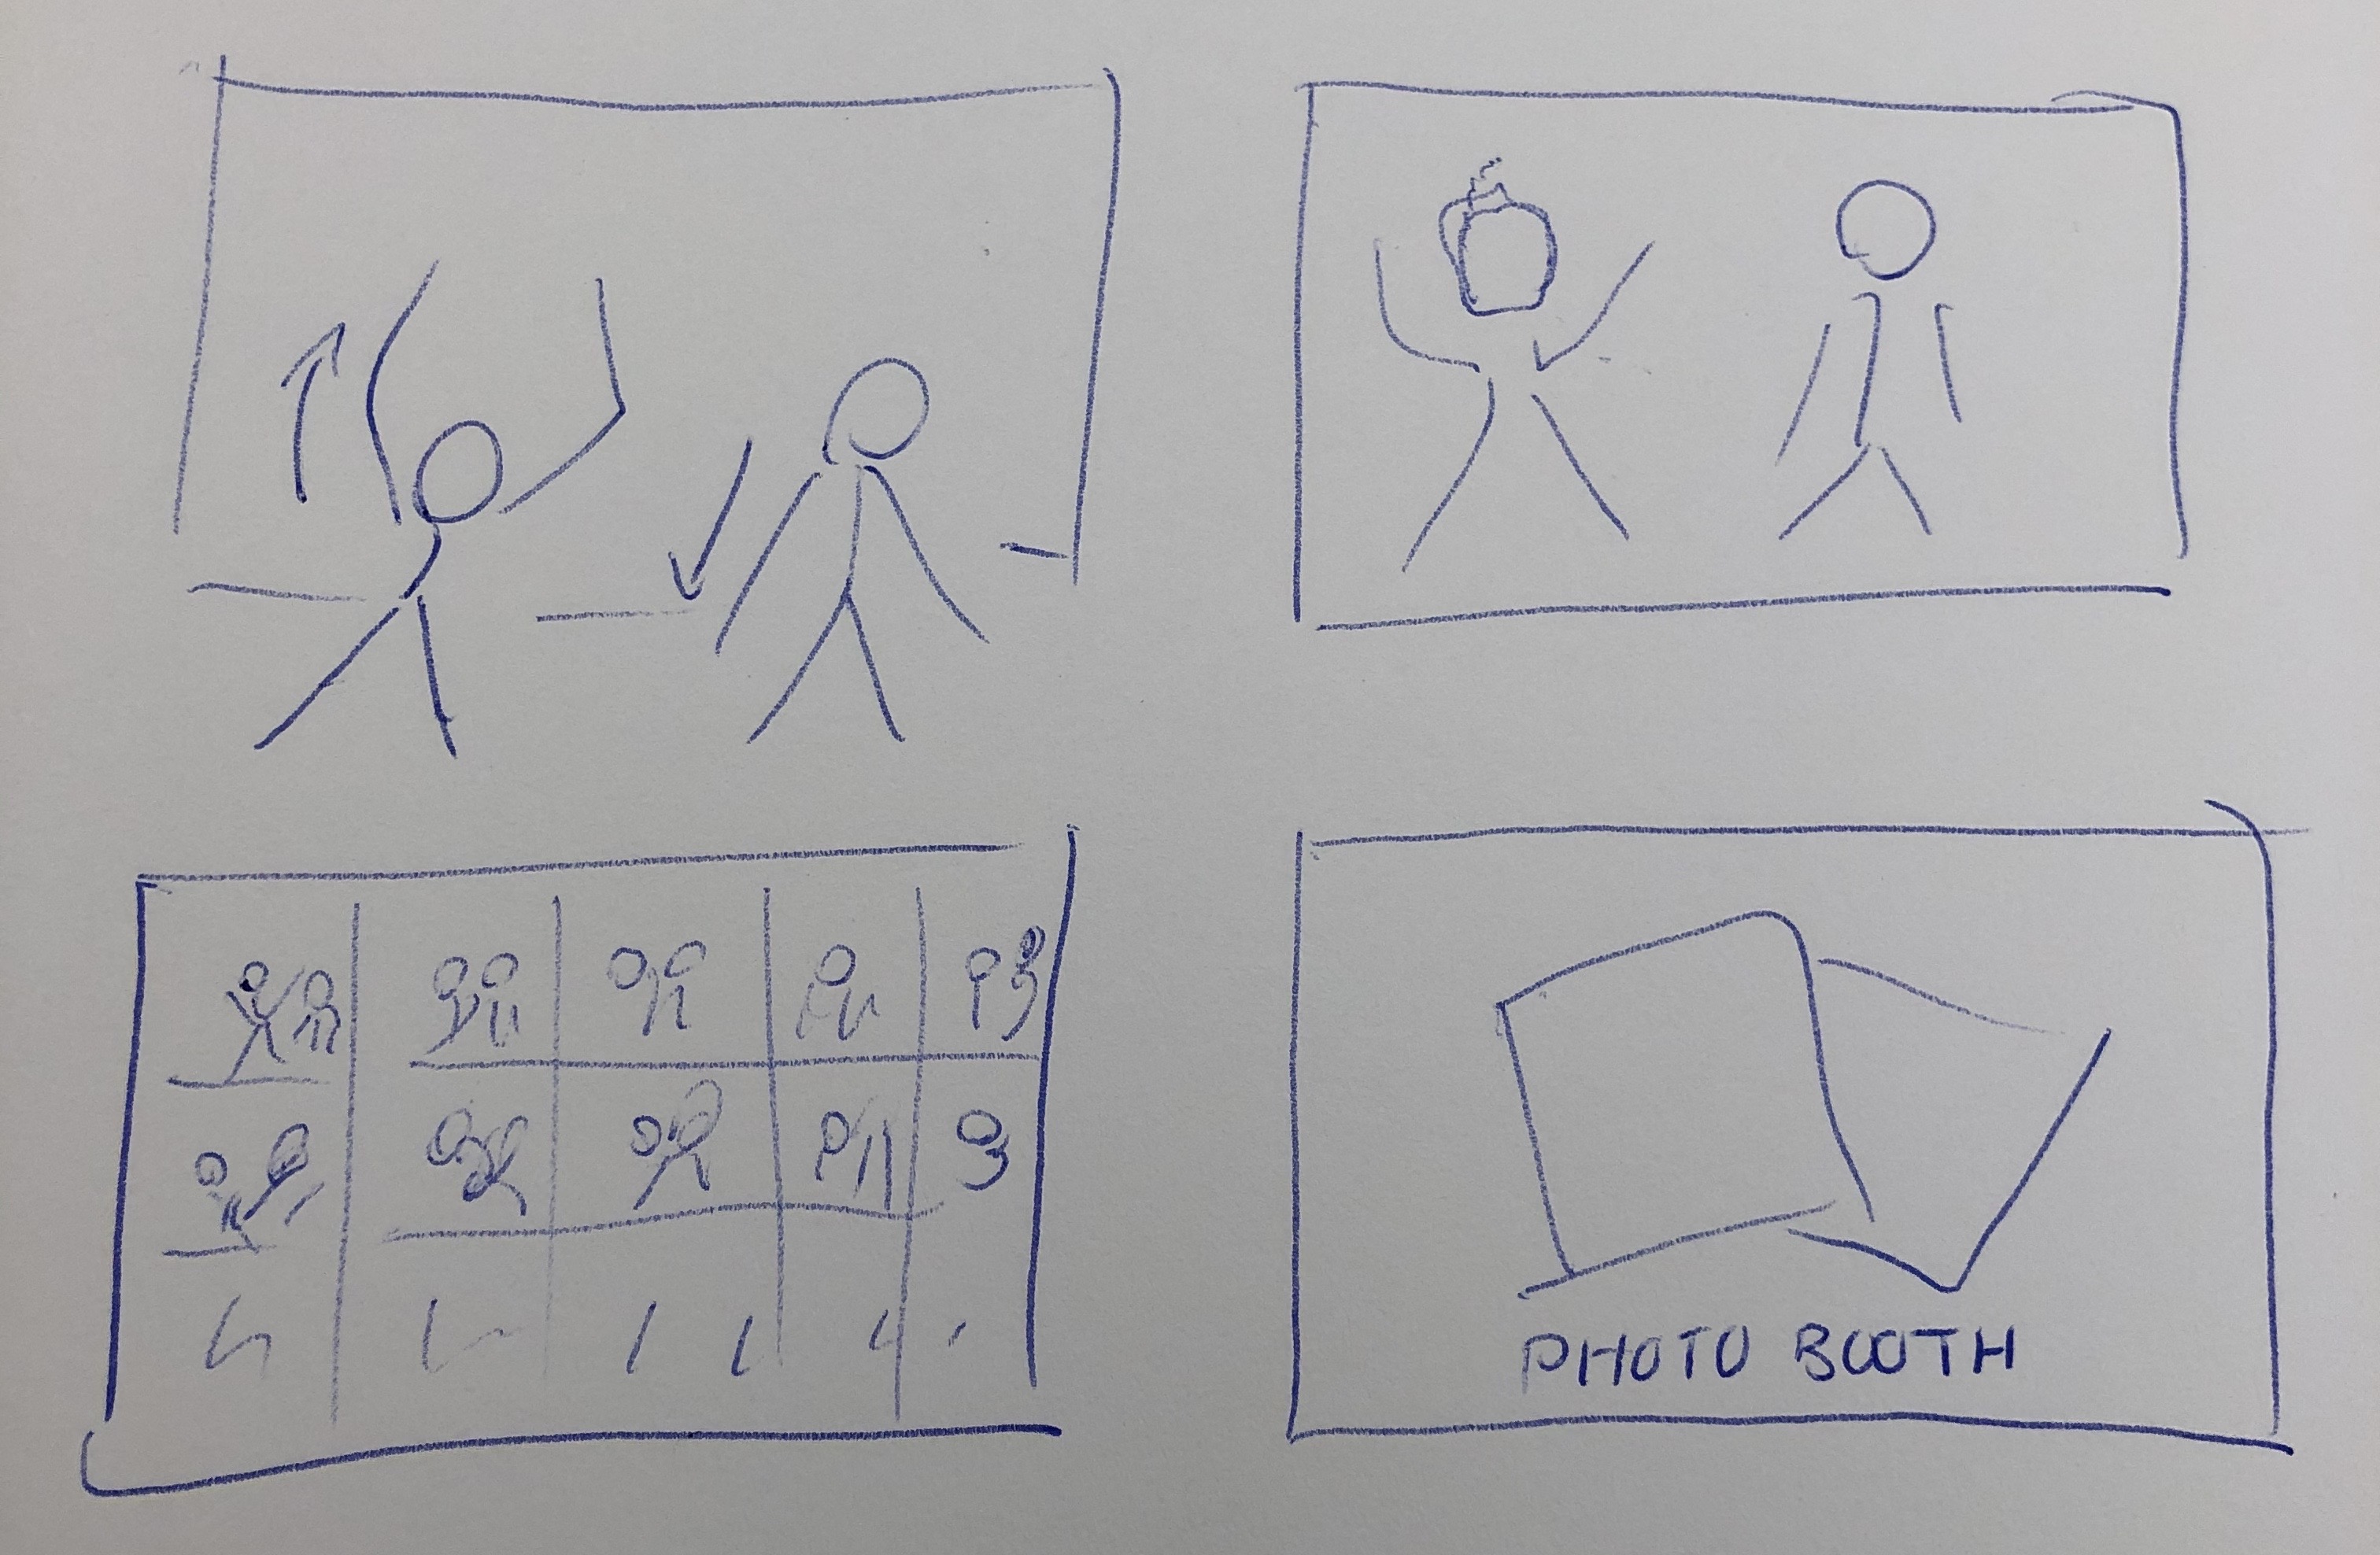 PHOTO BOOTH